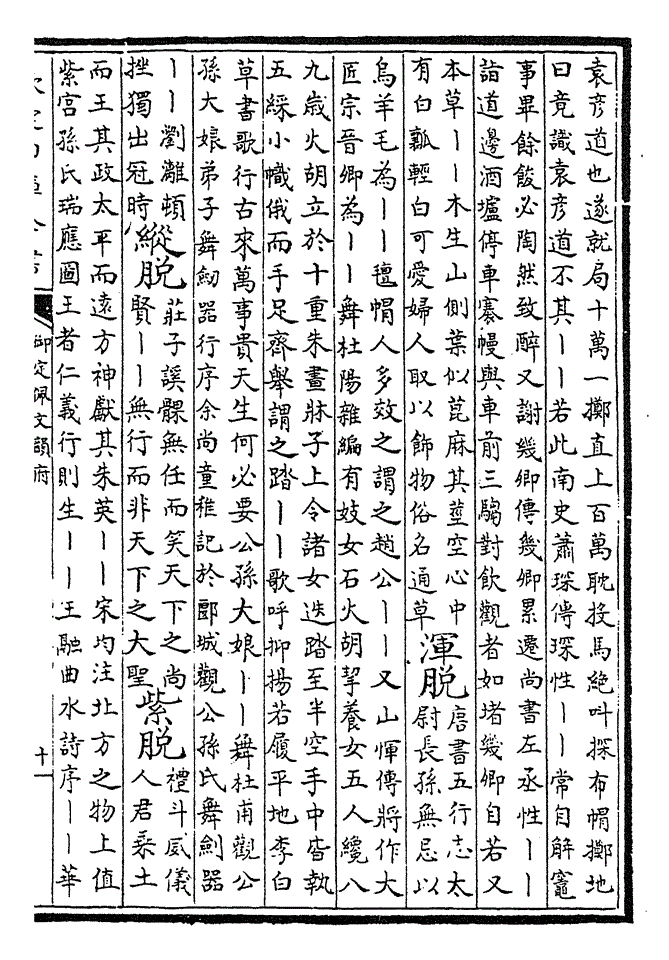 袁彦道也遂就局十萬一擲直上百萬耽投馬絶叫探布帽擲地
曰竟識袁彦道不其丨丨若此南史蕭琛傳琛性丨丨常自解竈
事畢餘餕必陶然致醉又謝幾卿傳幾卿累遷尚書左丞性丨丨
詣道邊酒壚停車褰幔與車前三騶對飲觀者如堵幾卿自若又
本草丨丨木生山側葉似萞麻其莖空心中
有白瓤輕白可愛婦人取以飾物俗名通草
渾脱
唐書五行志太
尉長孫無忌以
烏羊毛為丨丨氊帽人多效之謂之趙公丨丨又山惲傳將作大
匠宗晉卿為丨丨舞杜陽雜編有妓女石火胡挈養女五人纔八
九歳火胡立於十重朱畫牀子上令諸女迭踏至半空手中皆執
五綵小幟俄而手足齊舉謂之踏丨丨歌呼抑揚若履平地李白
草書歌行古來萬事貴天生何必要公孫大娘丨丨舞杜甫觀公
孫大娘弟子舞劒器行序余尚童稚記於郾城觀公孫氏舞劍器
丨丨瀏灕頓
挫獨出冠時
縱脱
莊子謑髁無任而笑天下之尚
賢丨丨無行而非天下之大聖
紫脱
禮斗威儀
人君乗土
而王其政太平而遠方神獻其朱英丨丨宋均注北方之物上值
紫宫孫氏瑞應圖王者仁義行則生丨丨王融曲水詩序丨丨華
欽定四庫全書
御定佩文韻府
十一